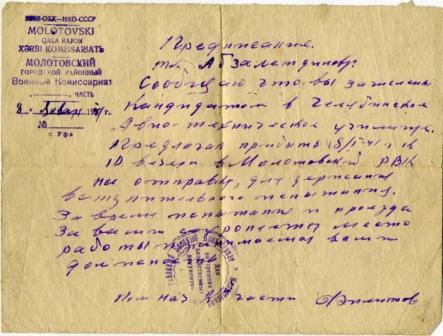 ХКХ-НКО-СССР
MOLOTOVSKI
QALA RAJON
XƏRBI KOMISSARIATЬ
МОЛОТОВСКИЙ
ГОРОДСКОЙ РАЙОННЫЙ
Военный Комиссариат
ЧАСТЬ
8 января
№
г. Уфа
Предписание.
тов. Абзалетдинову
Сообщаю что вы зачислены
кандидатом в Челябинское
Авио-техническое училище.
Предлагая прибыть к
10 вечера в Молотовский РВК
на отправку, для держания
вступительного испытания.
За время испытания и проезда
За вами место
работы и занимаемая вами
должность.
Пом нач части Филиппов